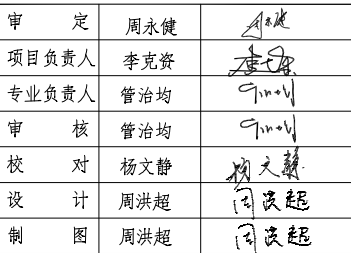 审 定 周永健 周永健
项目负责人 李克资
专业负责人 管治均
审 核 管治均
校 对 杨文静 杨文静
设 计 周洪超 周洪超
制 图 周洪超 周洪超